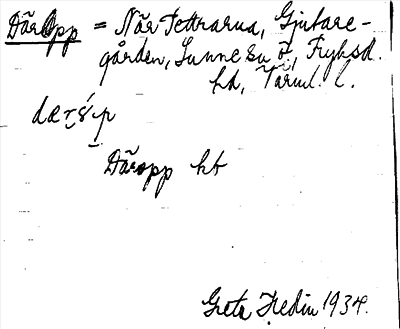 Däropp = När Tettrarna, Gjutare-
gården, Sunne sn Ö., Fryksd.
hd, Värml. l.
Däropp hb
Greta Hedin 1934.